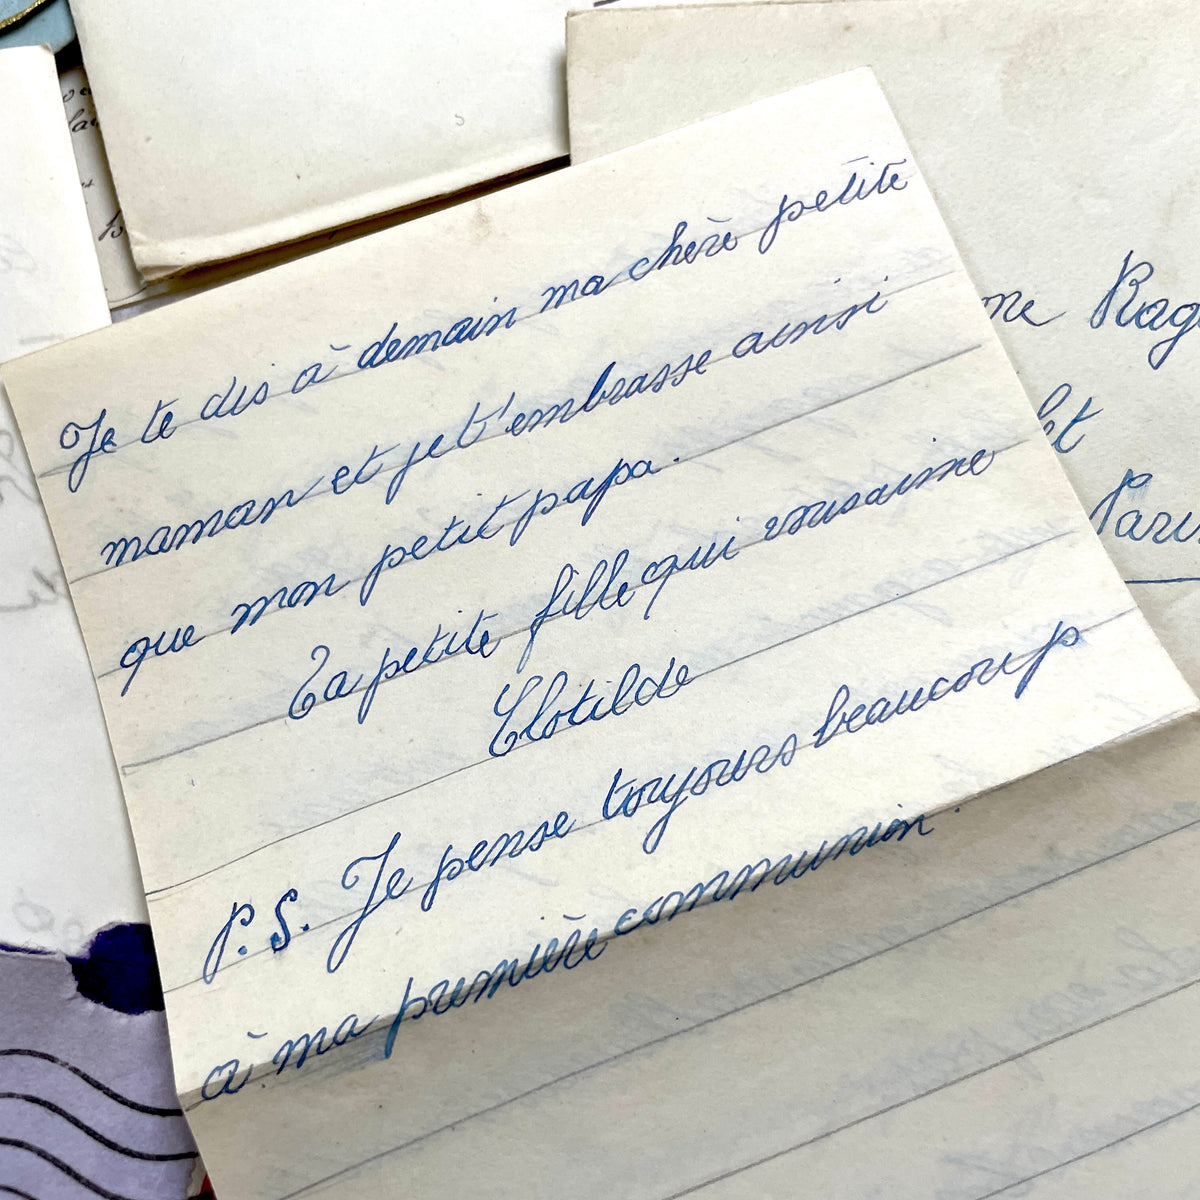 Je te dis à demain ma chère petite
maman et je t'embrasse ainsi
que mon petit papa.
Ta petite fille qui vous aime
Clotilde
P.S. Je pense toujours beaucoup
à ma première communion.
me Rag
let
Paris